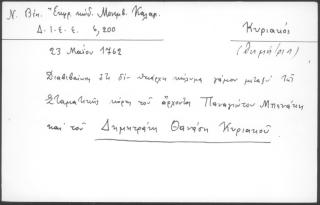 Ν. Βέη. Ἔγγρ. κώδ. Μητρβ. Καλαρ.
Δ. Ι. Ε. Ε. 6, 200
Κυριακός
(Δημήτρης)
23 Μαΐου 1762
Διαβεβαίωση ὅτι δὲν ὑπάρχη κώλυμα γάμου μεταξὺ τῆς
Σταματικῆς κόρης τοῦ ἄρχοντα Παναγιώτου Μπενάκη
καὶ τοῦ Δημητράκη Θανάση Κυριακοῦ